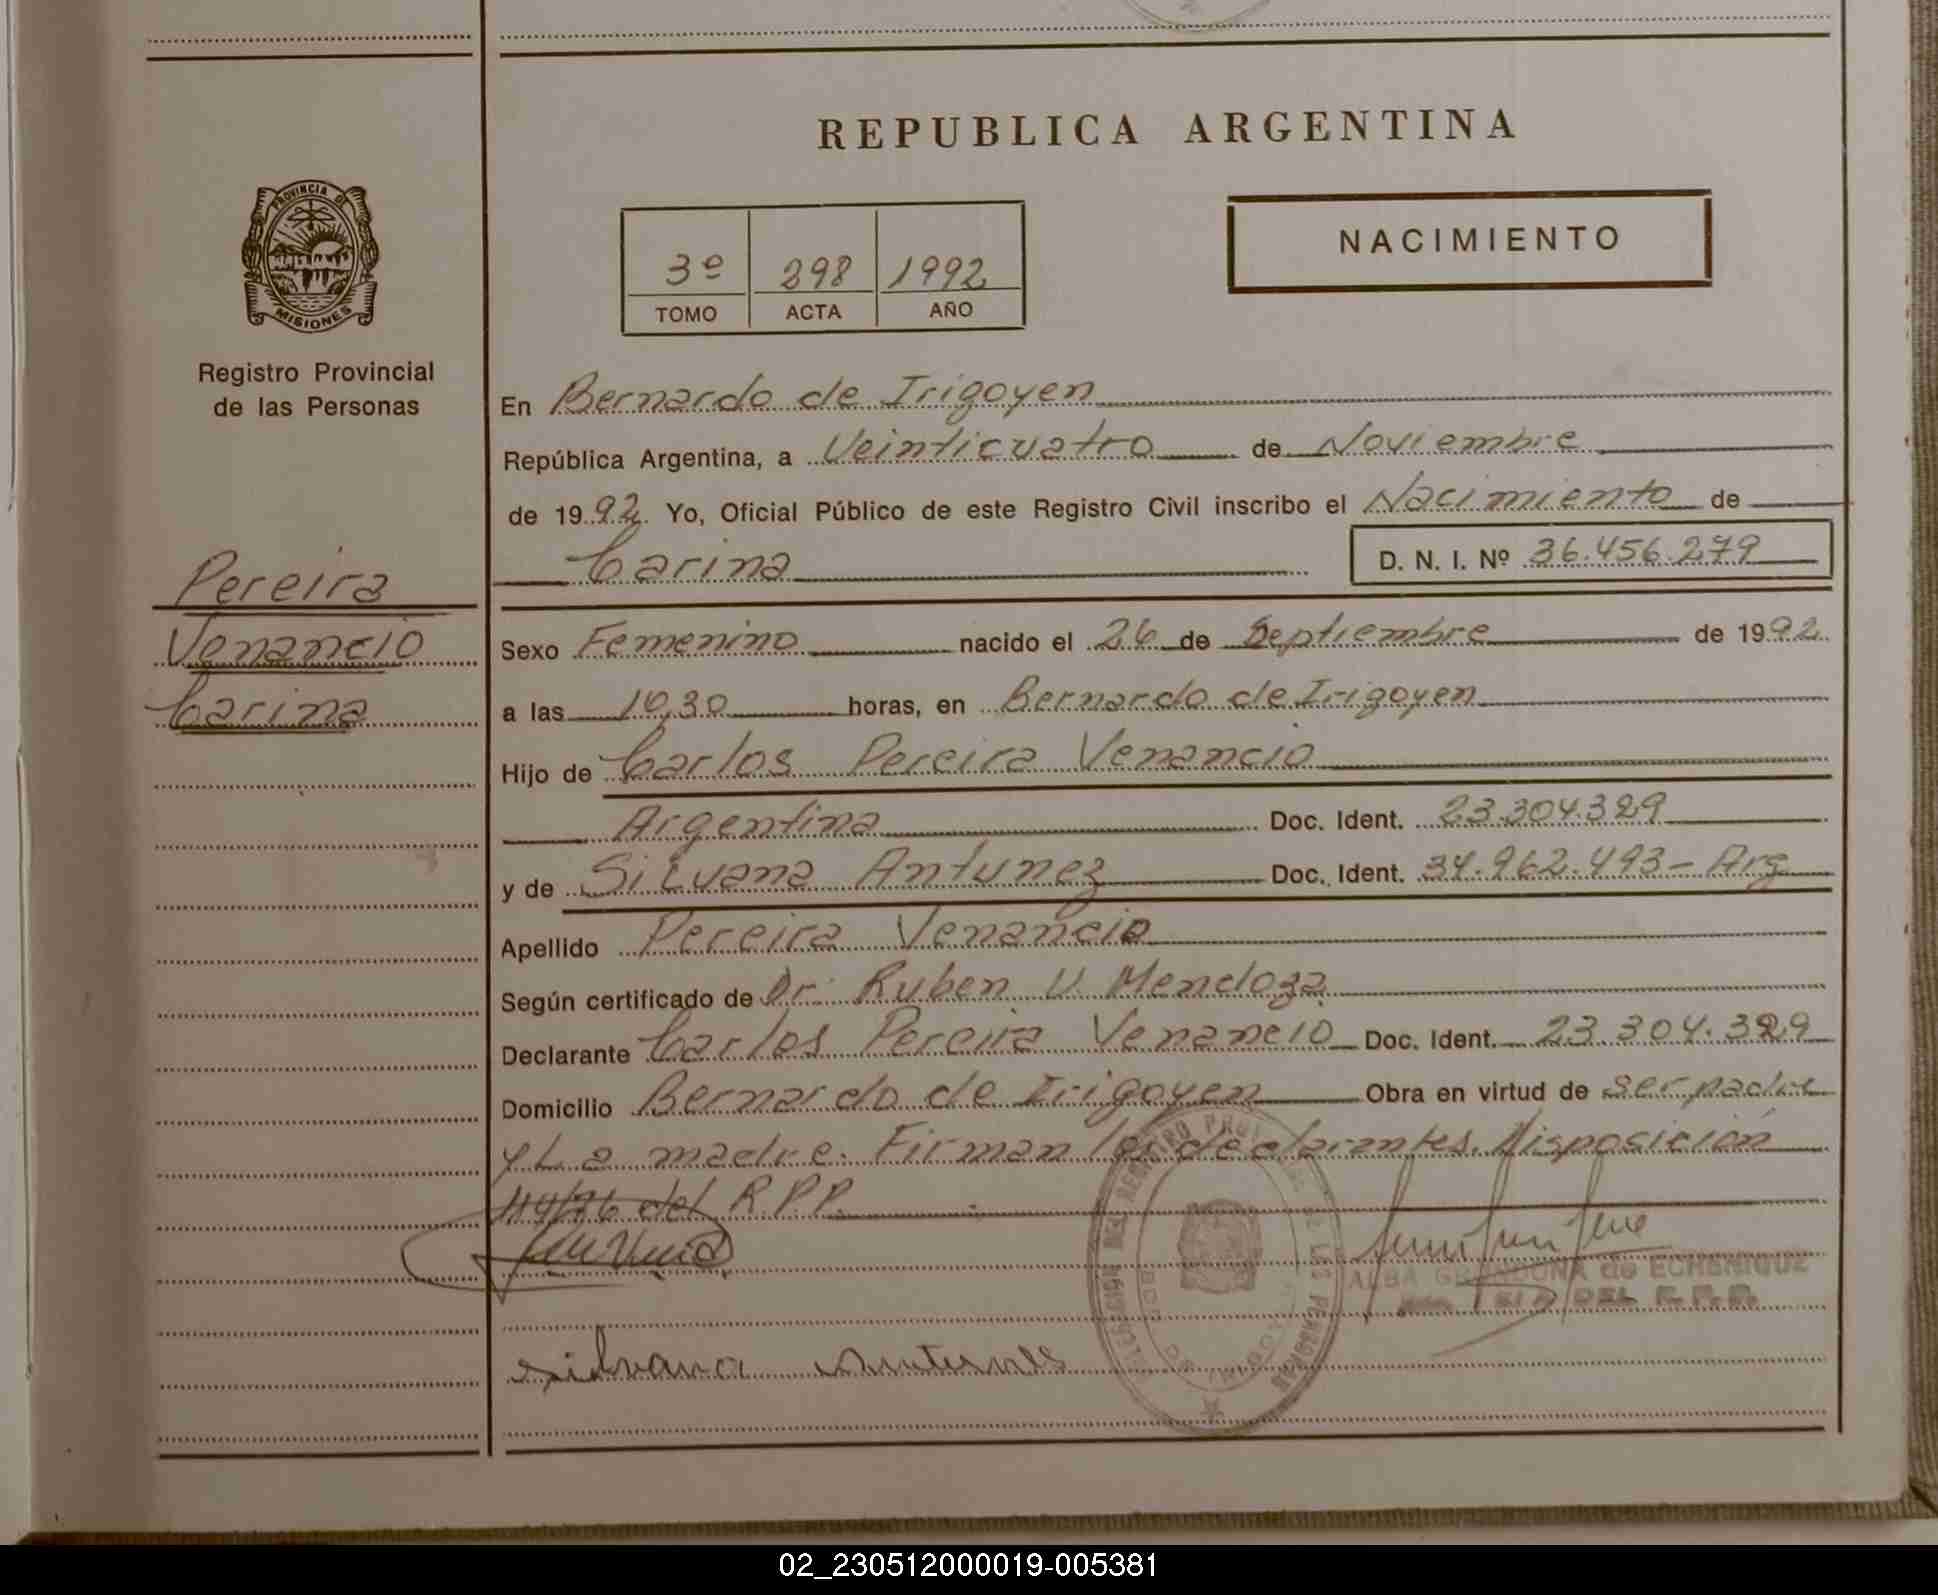 REPUBLICA ARGENTINA
PROVINCIA DE
MISIONES
Registro Provincial
de las Personas
3º 298 1992
TOMO ACTA AÑO
NACIMIENTO
En Bernardo de Irigoyen
República Argentina, a Veinticuatro de Noviembre
de 1992. Yo, Oficial Público de este Registro Civil inscribo el Nacimiento de
Carina D. N. I. Nº 36.456.279
Pereira
Venancio
Carina
Sexo Femenino nacido el 26 de Septiembre de 1992
a las 10,30 horas, en Bernardo de Irigoyen
Hijo de Carlos Pereira Venancio
Argentina Doc. Ident. 23.304.329
y de Silvana Antunez Doc. Ident. 34.962.493 - Arg
Apellido Pereira Venancio
Según certificado de Dr. Ruben U. Mendoza
Declarante Carlos Pereira Venancio Doc. Ident. 23.304.329
Domicilio Bernardo de Irigoyen Obra en virtud de ser padre
y La madre. Firman los declarantes. Disposición
114/76 del R.P.P.
ALBA de ECHENIQUE
DEL R.P.P.
Silvana Antunes
02_230512000019-005381